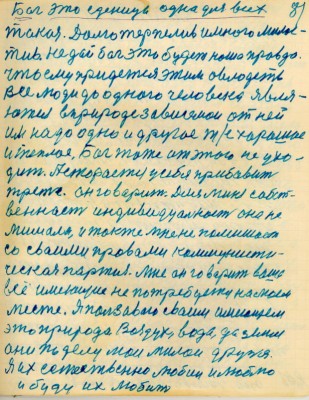 Бог это сденица одна для всех 8)
такая. Долго терпелив и много милос-
тив. не дай бог это будет наша правда.
что ему придется этим овладеть
все люди до одного человека явля-
ются в природе зависимой от ней
им надо одно и другое т/е харошое
и теплое, Бог тоже от этого не ухо-
дит. А скорости у себя прибавит
третье. он говорит. Для миня собст-
венность индивидуалность она не
мишала, и также мне не помишала
со своими провами коммунисти-
ческая партия. Мне он говорит ваше
всё имеющие не потребуется на моем
месте. Я ползовался своим имеющем
это природа Воздух, вода, да земля
они по делу мои милои друзья.
Я их естественно любил и люблю
и буду их любить